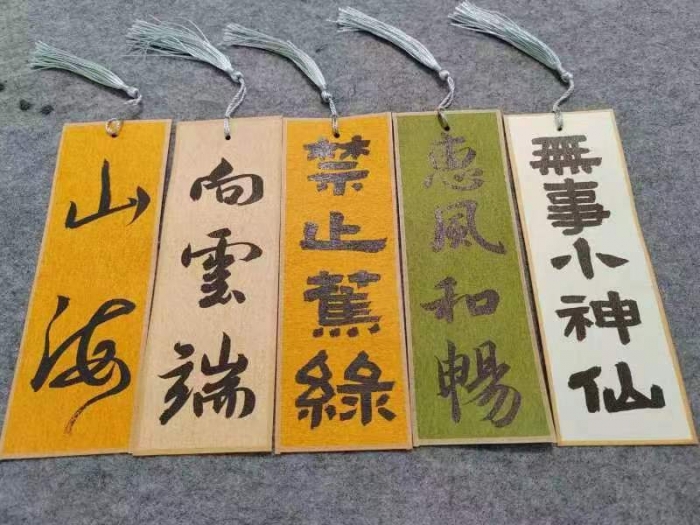 山海
向雲端
禁止蕉綠
惠風和暢
無事小神仙